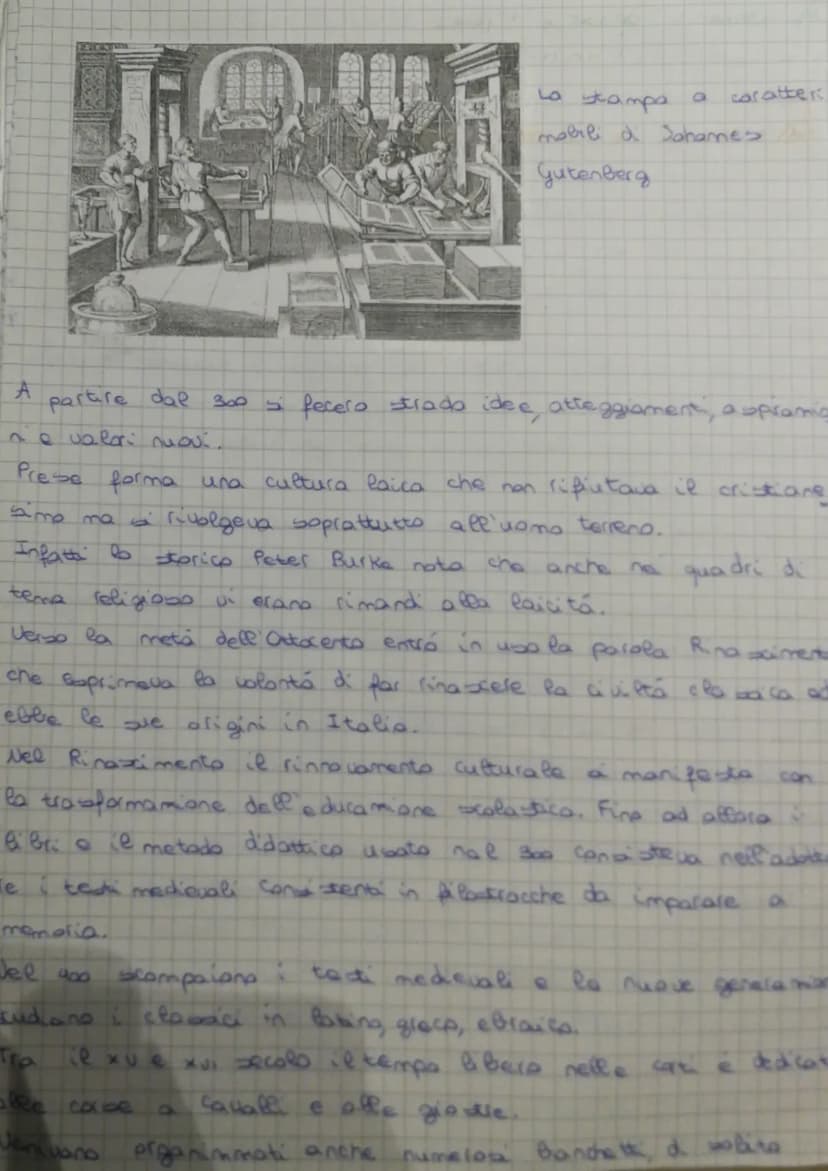 La stampa a caratteri
mobili di Johannes
Gutenberg
A partire dal 300 si fecero strada idee, atteggiamenti, aspirazio
ni e valori nuovi.
Prese forma una cultura laica che non rifiutava il cristiane
simo ma si rivolgeva soprattutto all'uomo terreno.
Infatti lo storico Peter Burke nota che anche nei quadri di
tema religioso vi erano rimandi alla laicitá.
Verso la metá dell'Ottocento entró in uso la parola Rinasciment
che esprimeva la volontá di far rinascere la civiltá classica ed
ebbe le sue origini in Italia.
Nel Rinascimento il rinnovamento culturale si manifesta con
la trasformazione dell'educazione scolastica. Fino ad allora i
libri e il metodo didattico usato nel 300 consisteva nell'adotta
re i testi medievali consistenti in filastrocche da imparare a
memoria.
Nel 400 scompaiono i testi medievali e le nuove generazio
studiano i classici in latino, greco, ebraico.
Tra il XV e XVI secolo il tempo libero nelle corti é dedicat
alle corse a cavalli e alle giostre.
Venivano organizzati anche numerosi banchetti, di solito